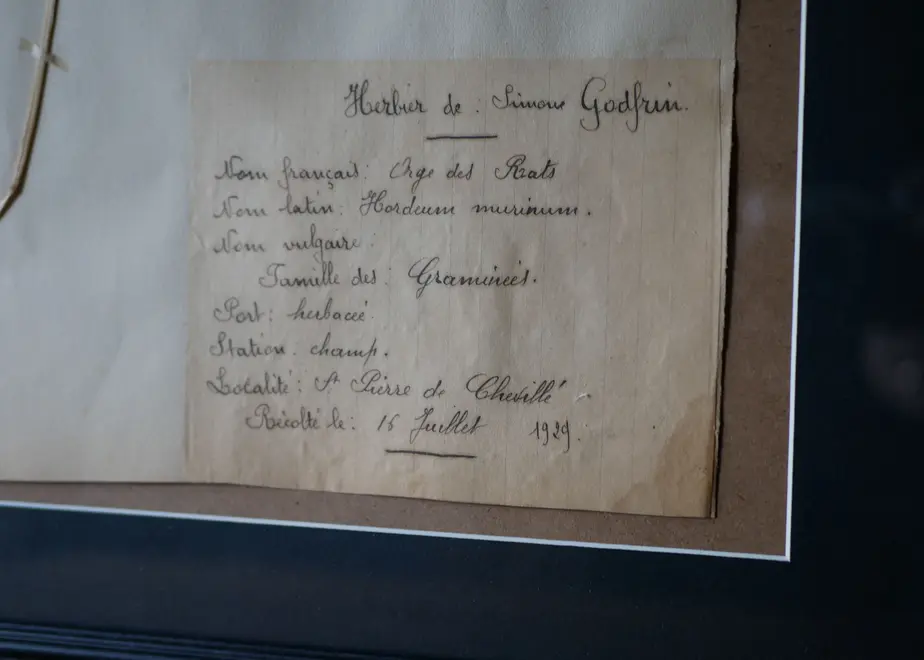 Herbier de : Simone Godfrin.
Nom français : Orge des Rats
Nom latin : Hordeum murinum.
Nom vulgaire :
Famille des : Graminées.
Port : herbacé.
Station : champ.
Localité : St Pierre de Chevillé
Récolté le : 15 Juillet 1929.